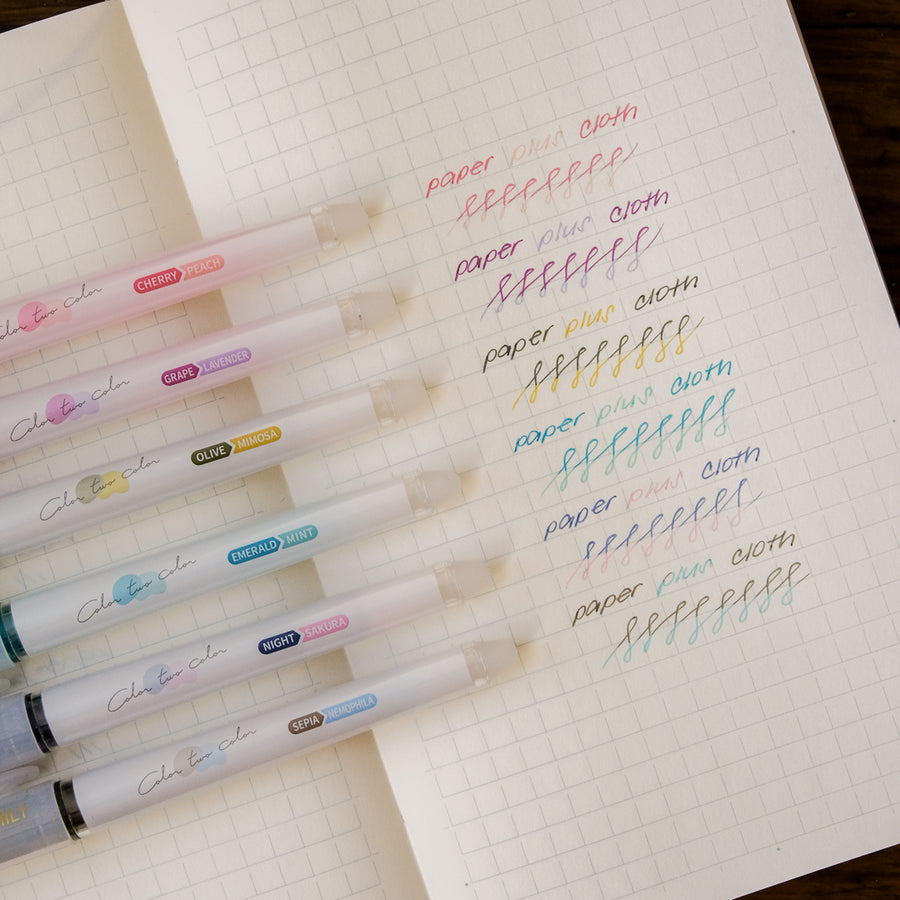 paper plus cloth
paper plus cloth
paper plus cloth
paper plus cloth
paper plus cloth
paper plus cloth
Color two color CHERRY PEACH
Color two color GRAPE LAVENDER
Color two color OLIVE MIMOSA
Color two color EMERALD MINT
Color two color NIGHT SAKURA
Color two color SEPIA NEMOPHILA